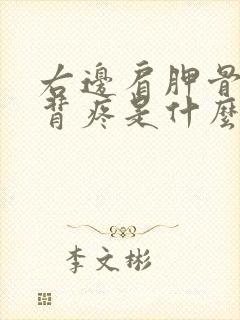 右邊肩胛骨
背疼是什麼
李文彬